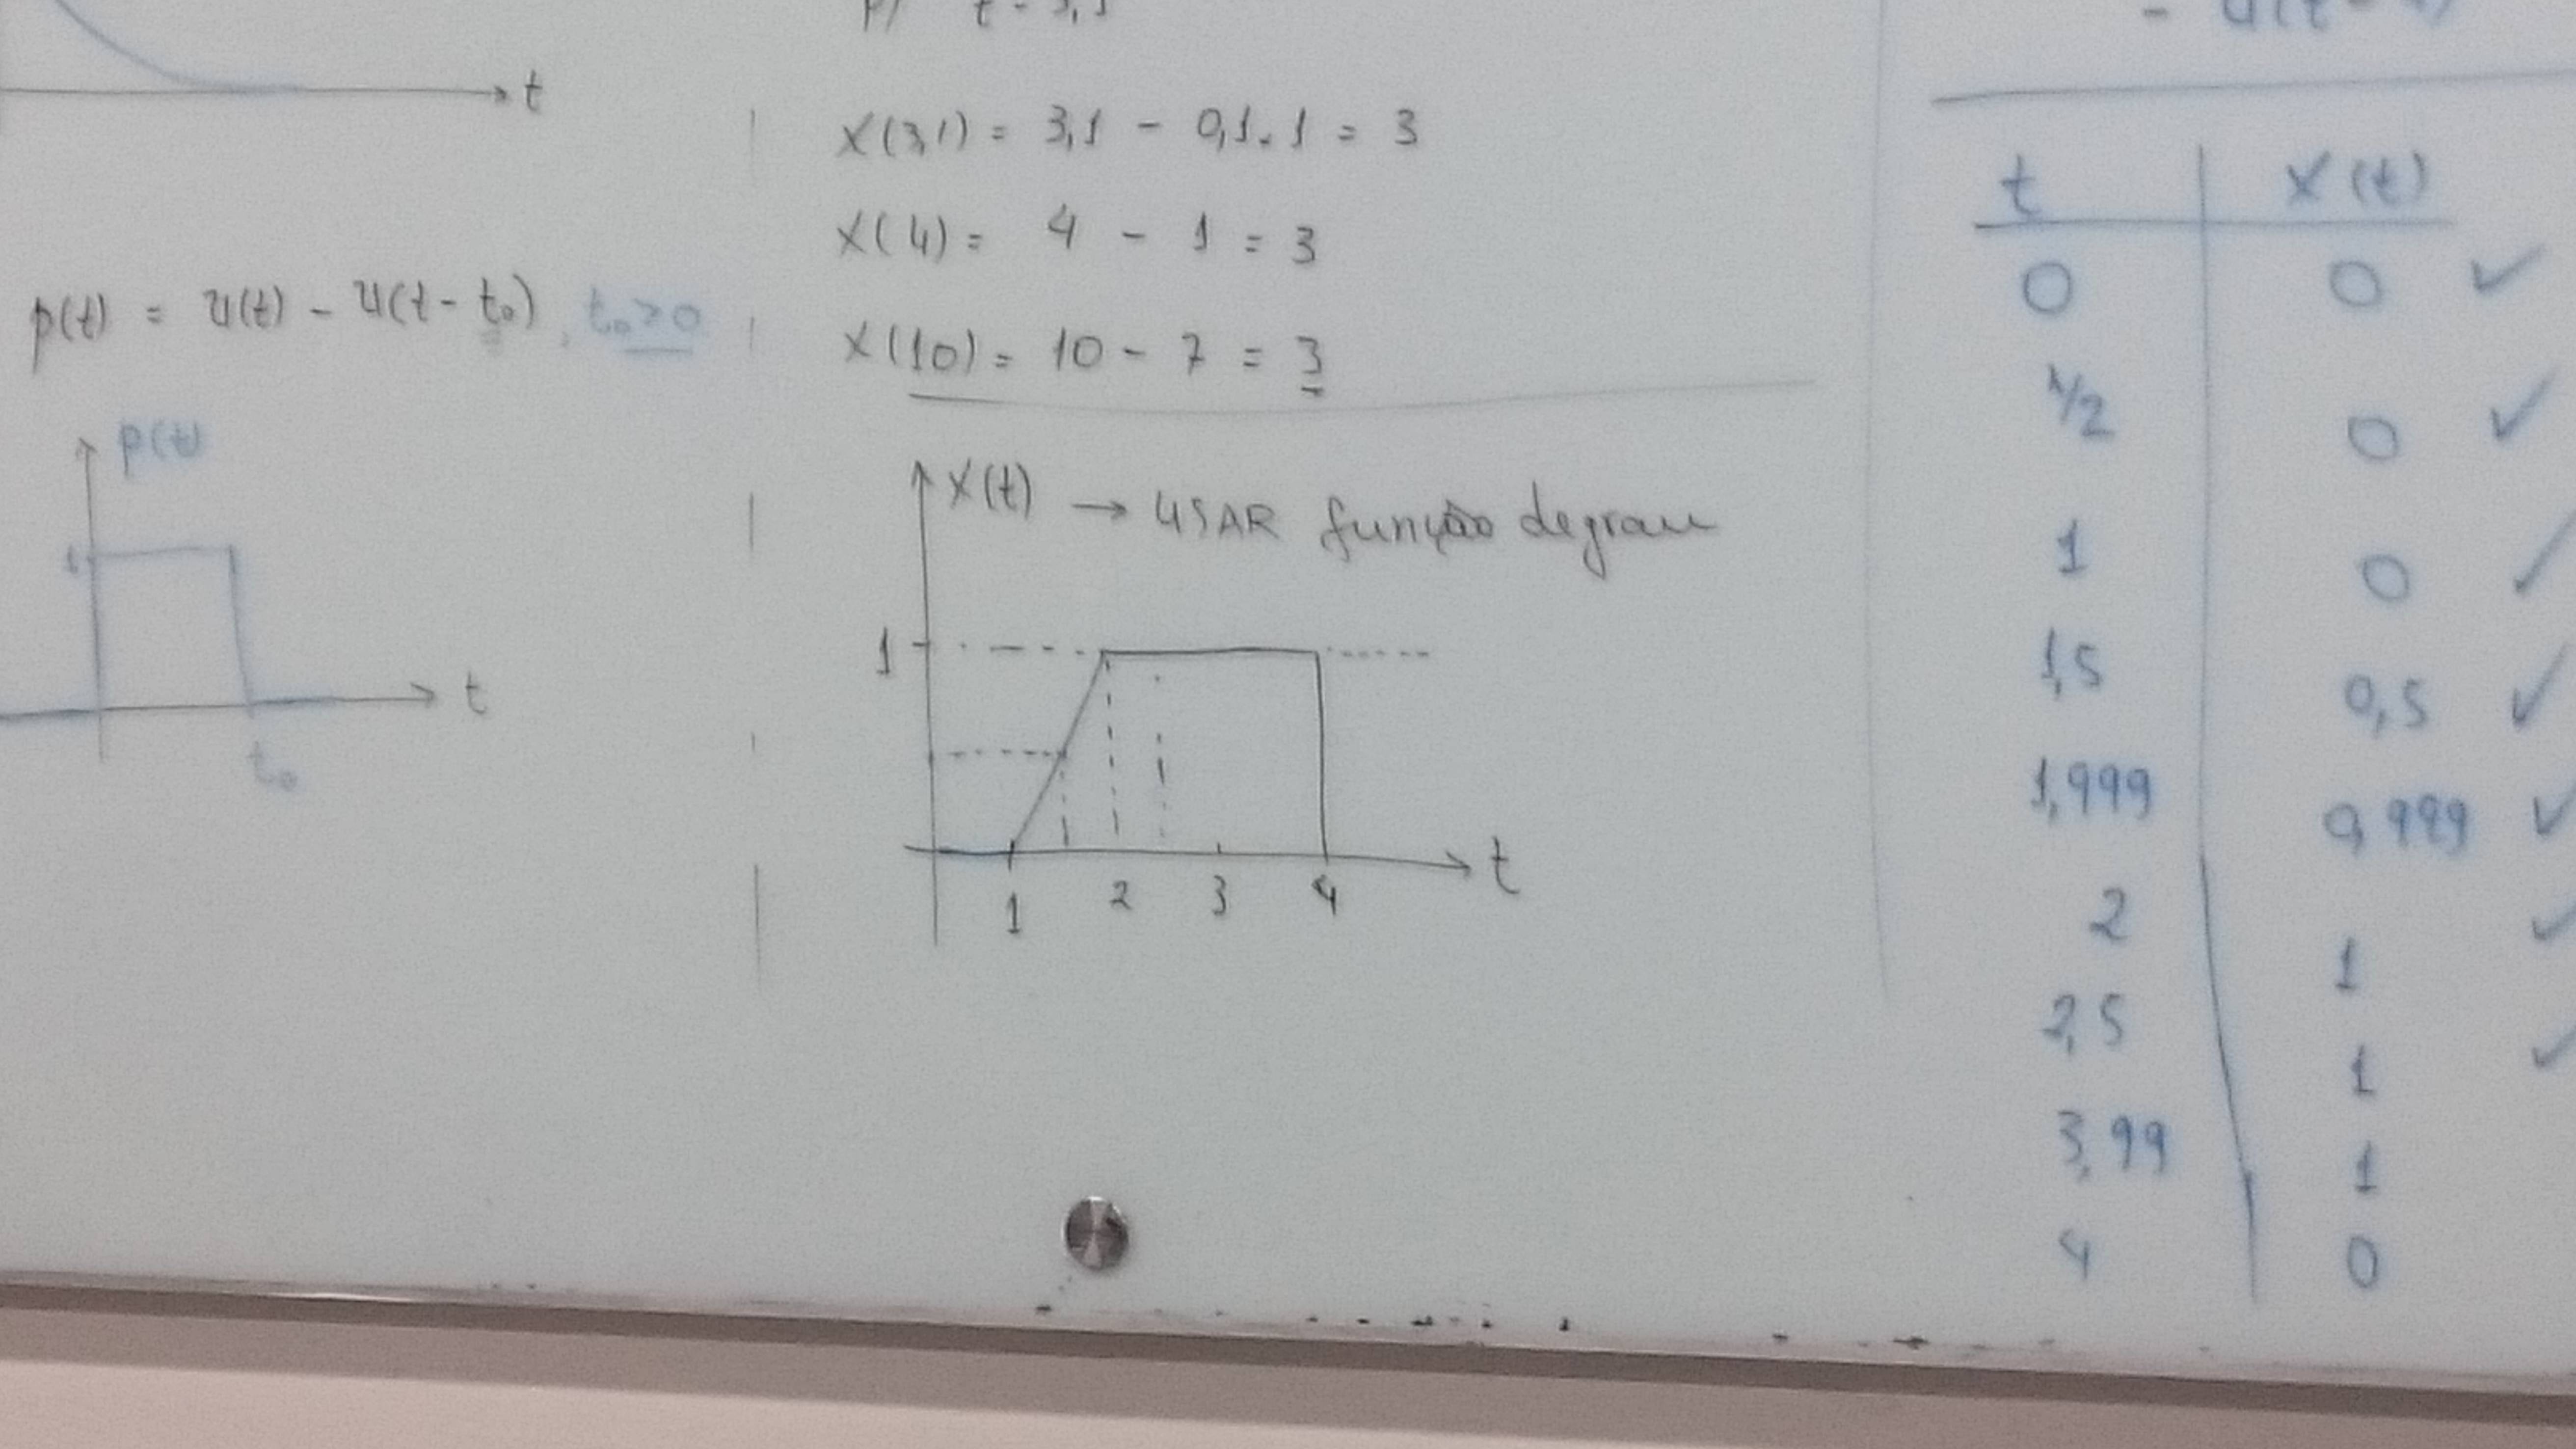 t
p(t) = u(t) - u(t - t₀), t₀>0
p(t)
1
t
t₀
X(3,1) = 3,1 - 0,1.1 = 3
X(4) = 4 - 1 = 3
X(10) = 10 - 7 = 3
X(t) → USAR função degrau
1
t
1 2 3 4
t X(t)
0 0 ✓
1/2 0 ✓
1 0 ✓
1,5 0,5 ✓
1,999 0,999 ✓
2 1 ✓
2,5 1 ✓
3,99 1
4 0